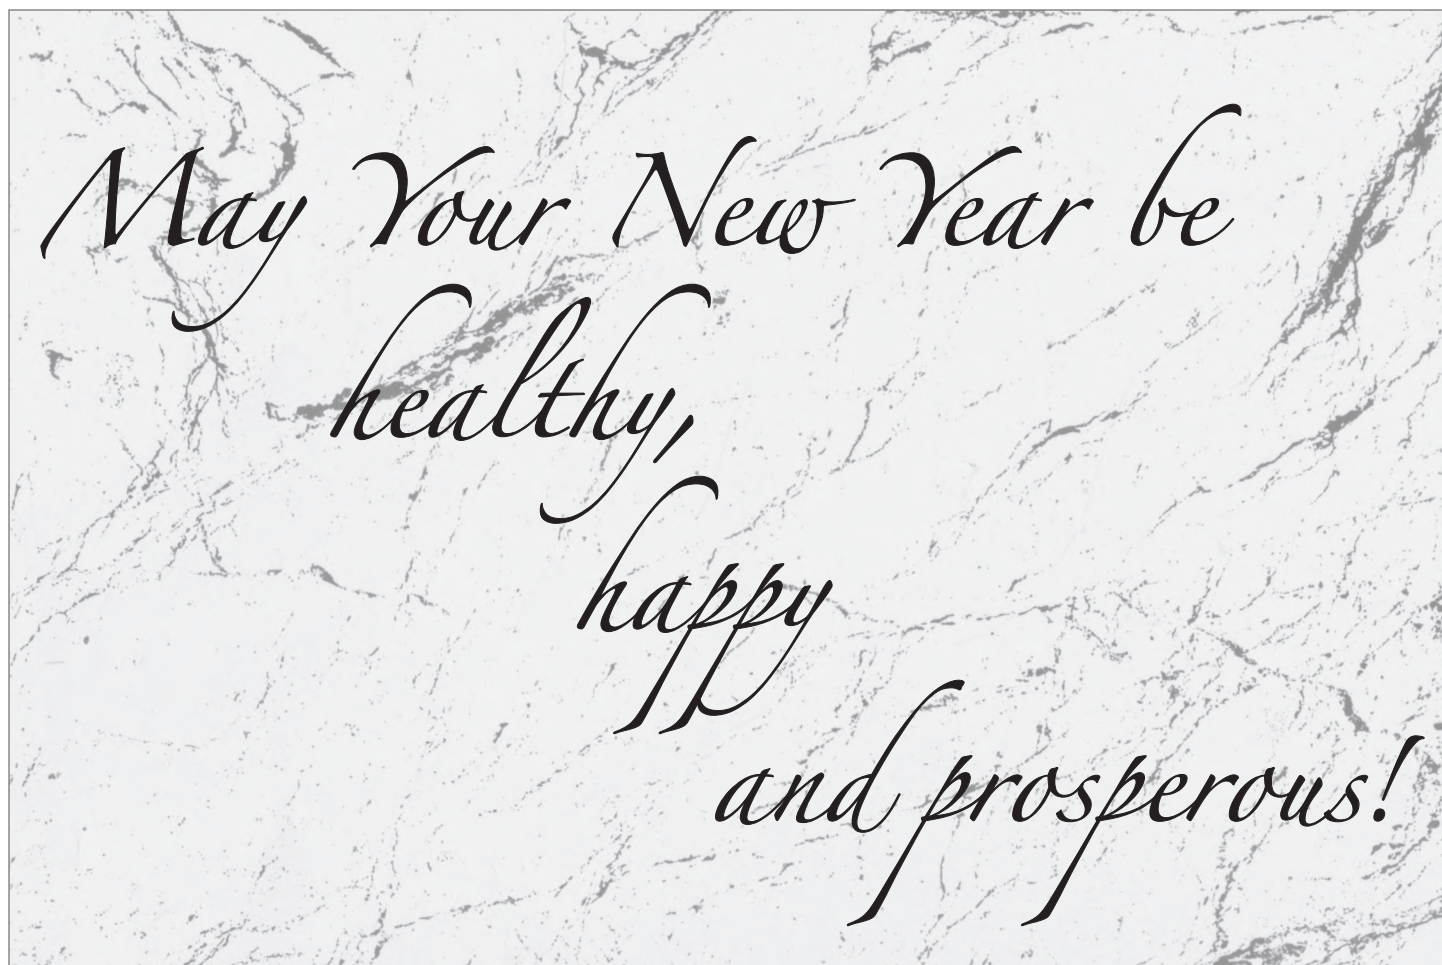 May Your New Year be
healthy,
happy
and prosperous!